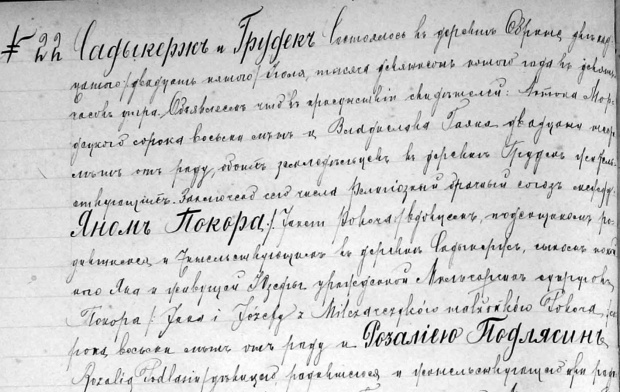 № 22 Садыкержъ и Грудекъ Состоялось въ деревнѣ Обрыте двѣнад
цатого/двадцать пятого/ Іюля, тысяча девятьсотъ пятого года въ девять
часовъ утра. Объявляемъ что въ присутствіи свидѣтелей: Антона Мор
сорока восьми лѣтъ и Владислава Гаека двадцати
лѣтъ отъ роду, обоихъ земледѣльцевъ въ деревнѣ Грудекъ житель
ствующихъ. Заключенъ сего числа Религіозный брачный союзъ между:
Яномъ Покора /Janem Pokora/ вдовцемъ, ро
дившимся и жительствующимъ въ деревнѣ Садыкержъ, сыномъ покой
ного Яна и живущей Юзефы урожденной супруговъ
Покора /Jana i Józefy z małżonków Pokora, со
рока восьми лѣтъ отъ роду и Розаліею Подлясинъ
Rozalią Podlasin/ дѣвицею родившеюся и жительствующею при